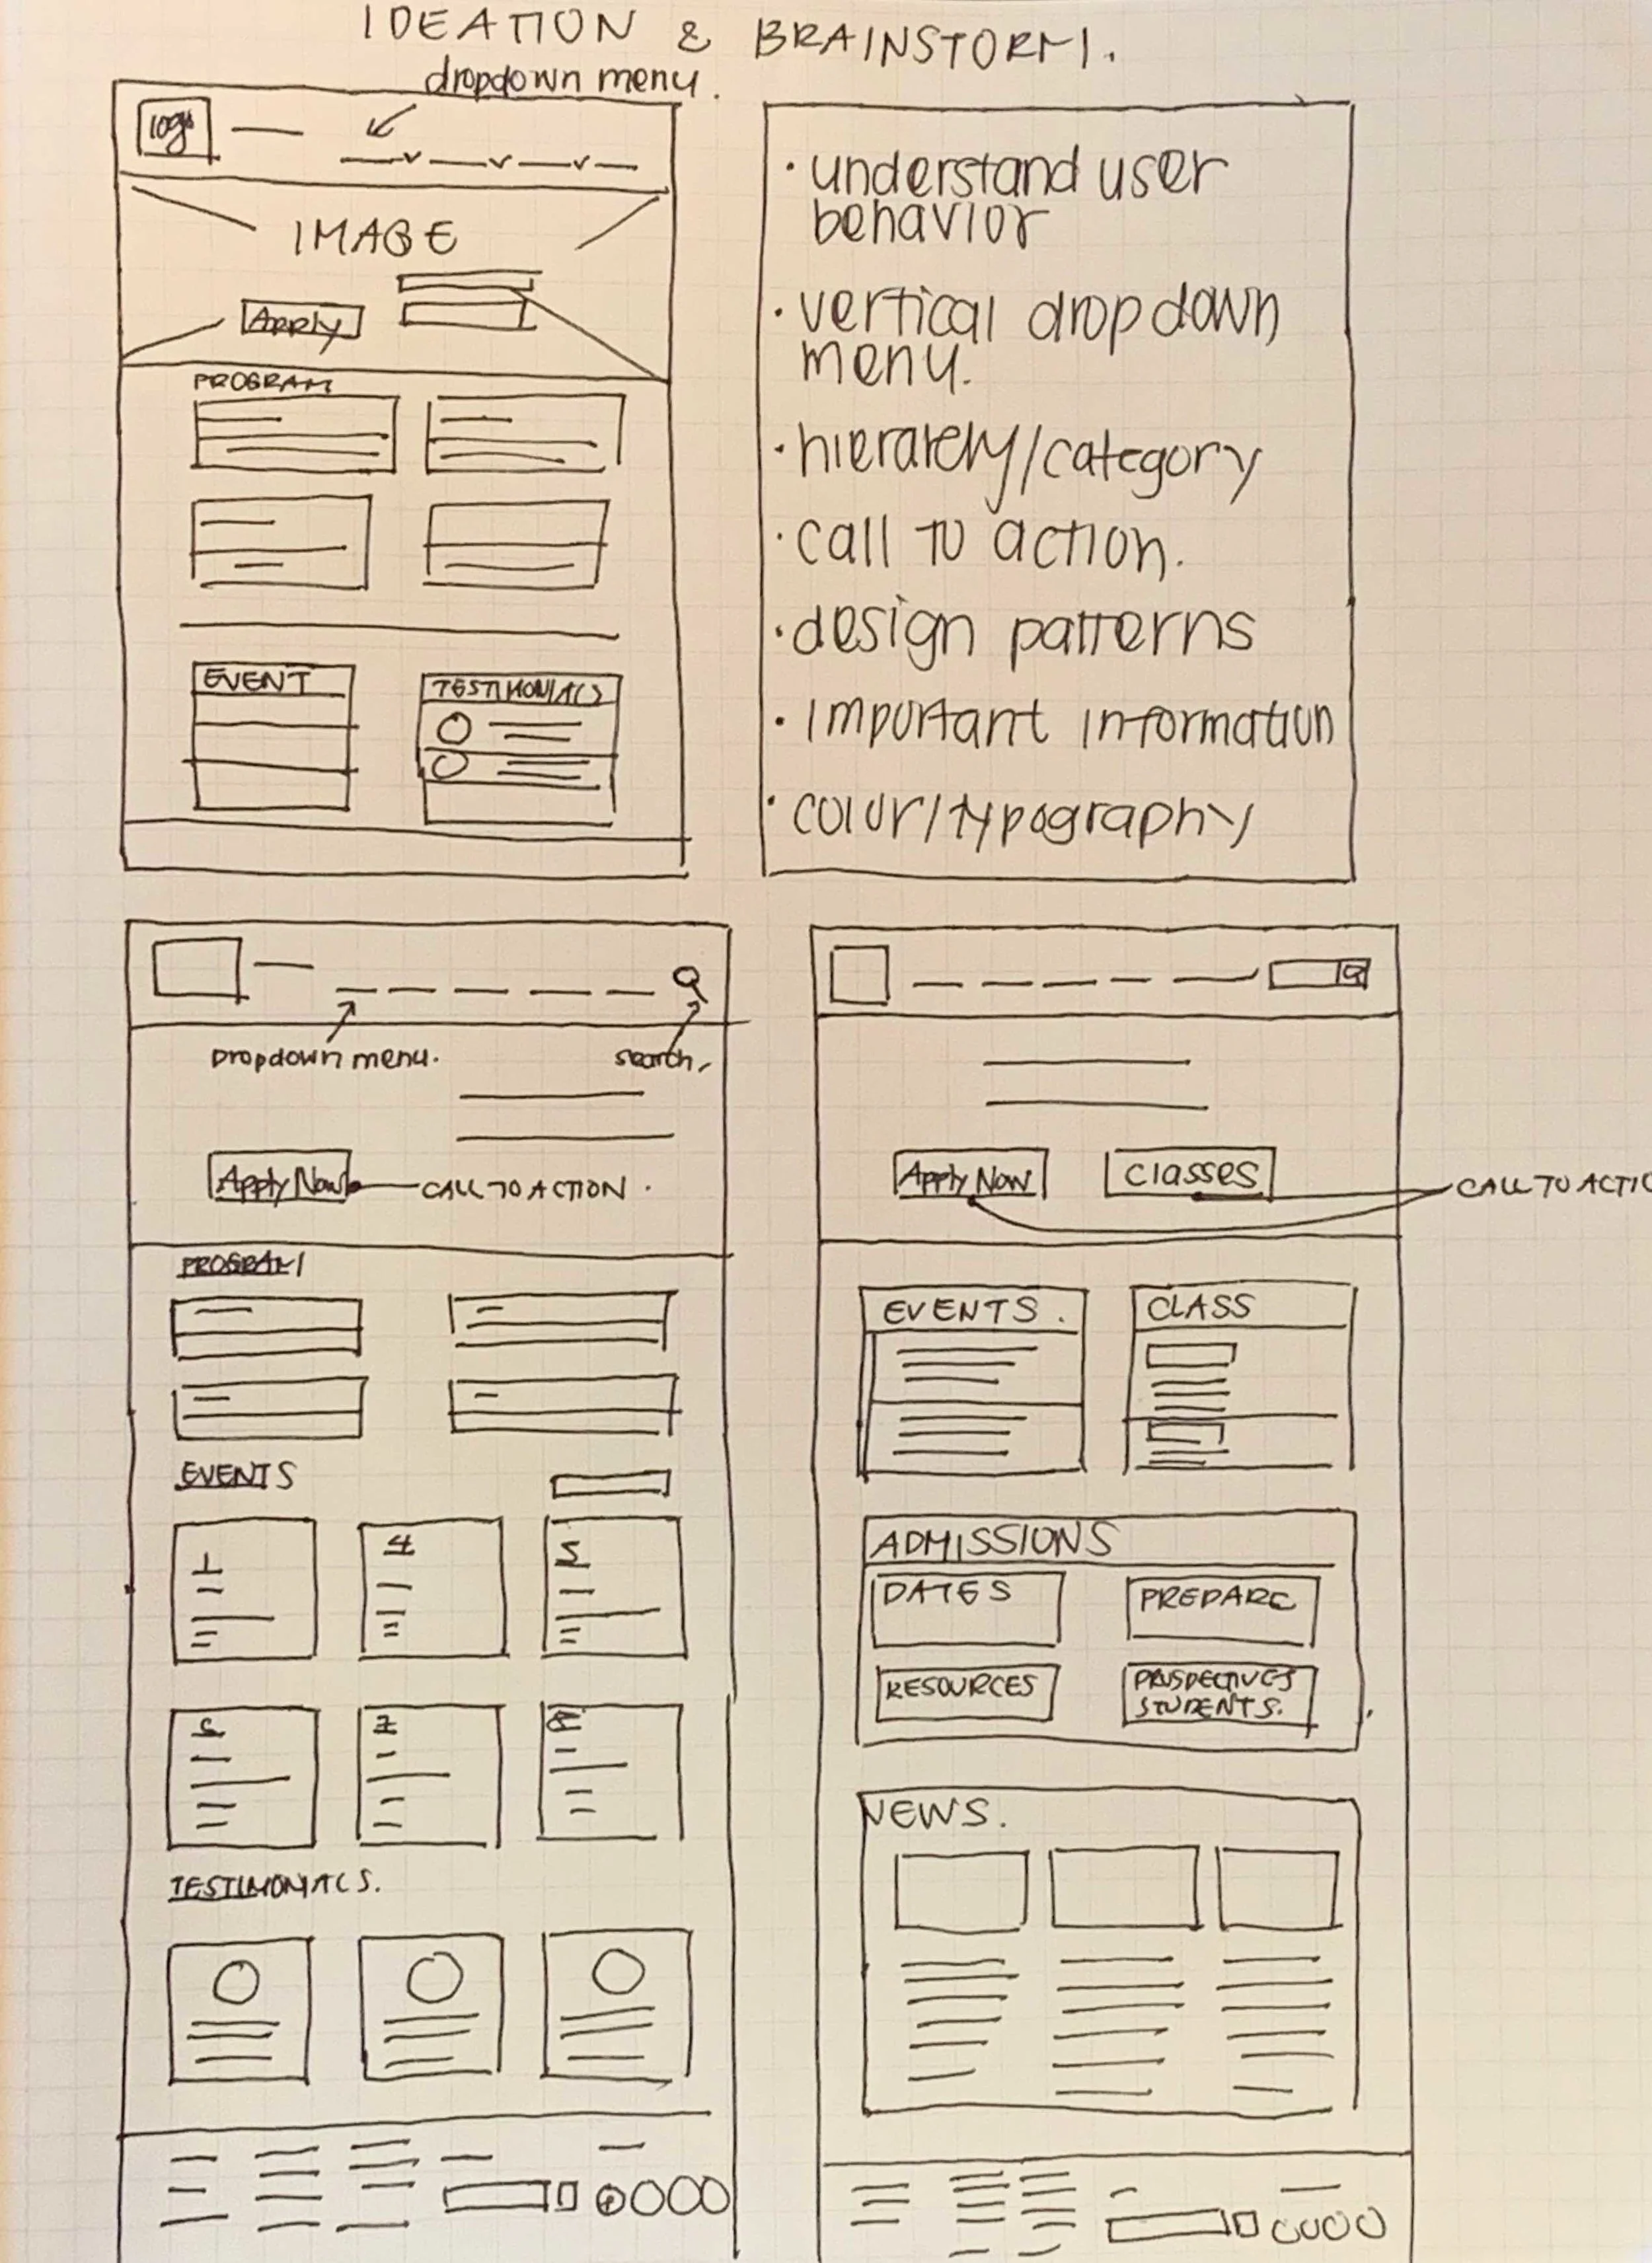 IDEATION & BRAINSTORM.
dropdown menu.
logo
IMAGE
Apply
PROGRAM
EVENT
TESTIMONIALS
· understand user
behavior
· vertical dropdown
menu.
· hierarchy/category
· call to action.
· design patterns
· important information
· color/typography
Dropdown menu.
search.
Apply Now
CALL TO ACTION.
PROGRAM
EVENTS
4
5
7
8
TESTIMONIALS.
Apply Now
classes
CALL TO ACTIO
EVENTS.
CLASS
ADMISSIONS
DATES
PREPARE
RESOURCES
PROSPECTIVES
STUDENTS.
NEWS.